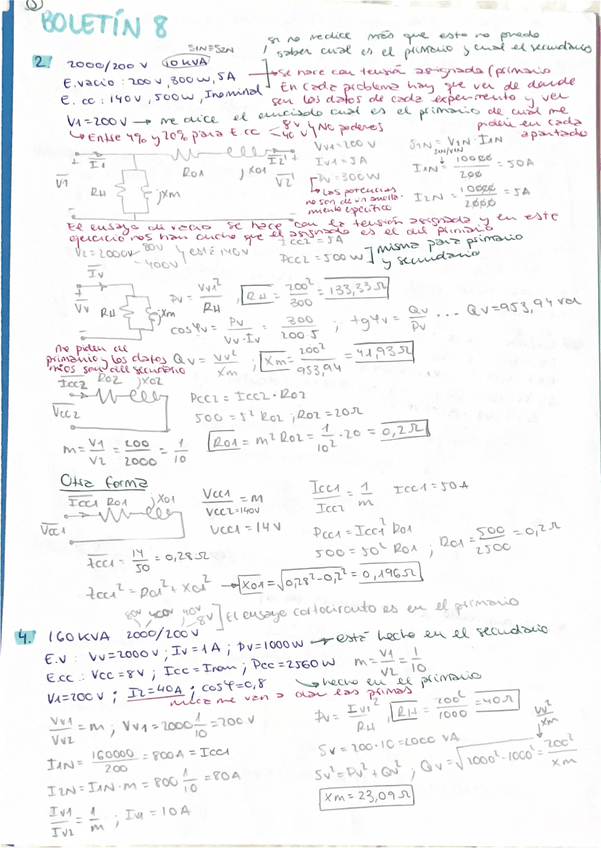 BOLETÍN 8
S1N=S2N
si no me dice más que esto no puedo
saber cual es el primario y cual el secundario
2. 2000/200 V 10 KVA
E. vacío: 200 V, 300 W, 5A → Se hace con tensión asignada (primario
E. cc: 140 V, 500 W, I nominal
En cada problema hay que ver de donde
son los datos de cada experimento y ver
V1=200 V → me dice el enunciado cual es el primario
de cual me piden en cada apartado
→ Entre 4% y 20% para E.cc
8V
40V
y NO
I1
R01
jX01
I2'
V1
RH
jXm
V2'
Vv1=200 V
Iv1=5A
Pv=300W
→ Las potencias
no son de un
S1N = V1N · I1N
I1N = 10000/200 = 50A
I2N = 10000/2000 = 5A
El ensayo de vacío se hace con la tensión asignada y en este
ejercicio nos han dicho que el asignado es el del primario
V2=2000V
80V
400V
y está 140V
Icc2=5A
Pcc2=500W
misma para primario
y secundario
Iv
Vv
RH
jXm
Pv = Vv1²/RH, RH = 200²/300 = 133,33Ω
cosφv = Pv/(Vv·Iv) = 300/(200·5); tgφv = Qv/Pv ... Qv=953,94 var
Me piden del
primario y los datos
míos son del secundario
Qv = Vv²/Xm; Xm = 200²/953,94 = 41,93Ω
Icc2 R02 jX02
Vcc2
Pcc2 = Icc2 · R02
500 = 5² R02; R02 = 20Ω
m = V1/V2 = 200/2000 = 1/10
R01 = m² R02 = 1/10² · 20 = 0,2Ω
Otra forma
Icc1 R01 jX01
Vcc1
Vcc1/Vcc2 = m
Vcc2=140V
Vcc1 = 14V
Icc1/Icc2 = 1/m Icc1 = 50A
Pcc1 = Icc1² R01
500 = 50² R01; R01 = 500/2500 = 0,2Ω
Zcc1 = 14/50 = 0,28Ω
Zcc1² = R01² + X01² → X01 = √0,28²-0,2² = 0,196Ω
80V 400V 40V
8V
El ensayo cortocircuito es en el primario
4. 160 KVA 2000/200 V
E.V: Vv=2000V; Iv=1A; Pv=1000W → está hecho en el secundario
E.cc: Vcc=8V; Icc=Inom; Pcc=2560W m = V1/V2 = 1/10
→ hecho en el primario
V1=200V; I2=40A; cosφ=0,8
nunca me van a dar las primas
Vv1/Vv2 = m; Vv1 = 2000 1/10 = 200V
Pv = Vv1²/RH, RH = 200²/1000 = 40Ω
I1N = 160000/200 = 800A = Icc1
Sv = 200·10 = 2000 VA
Vv²/Xm
I2N = I1N·m = 800 1/10 = 80A
Sv² = Pv² + Qv², Qv = √1000²-1000² = 200²/Xm
Iv1/Iv2 = 1/m; Iv1 = 10A
Xm = 23,09Ω